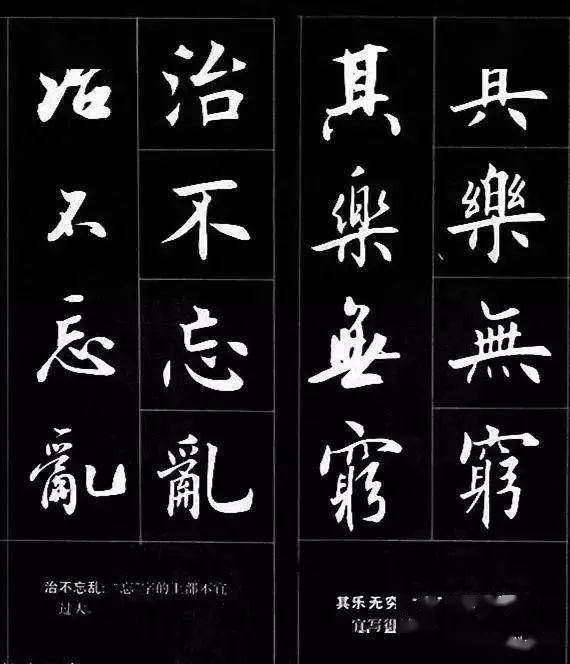 其樂無窮
其樂無窮
其乐无穷
宜写得
治不忘亂
治不忘亂
治不忘乱:“忘”字的上部不宜
过大。